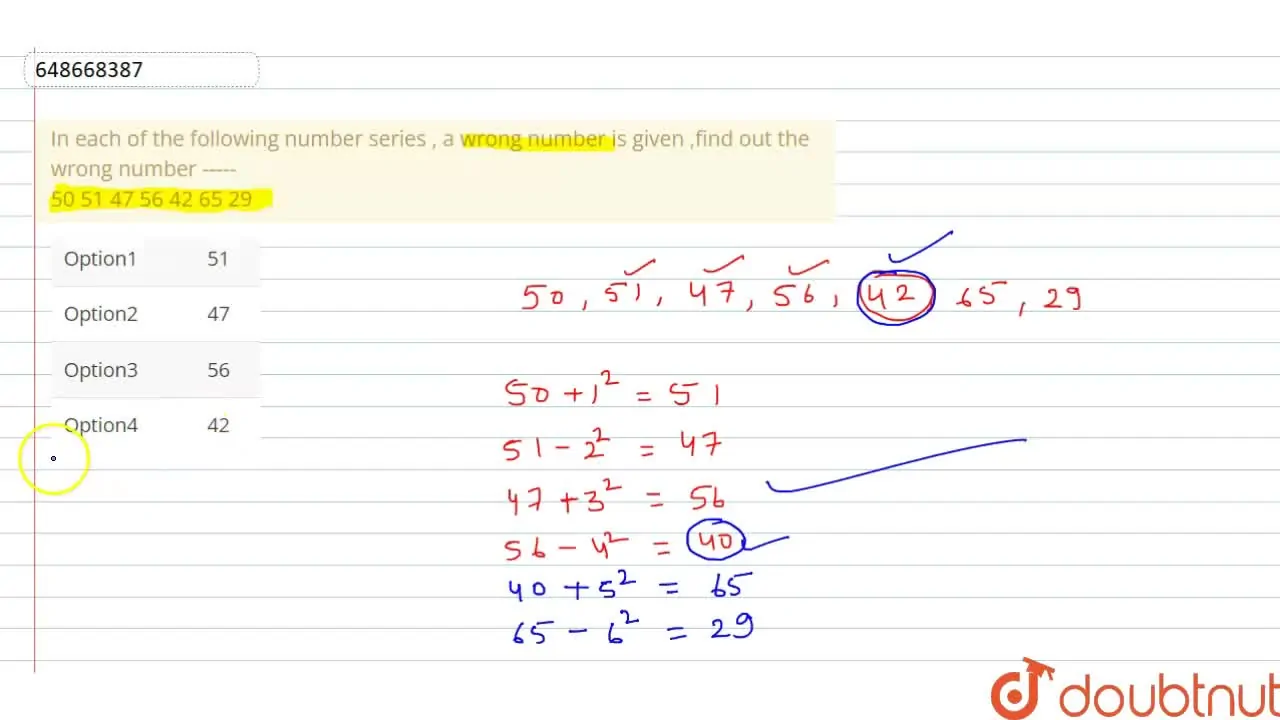 648668387
In each of the following number series , a wrong number is given ,find out the
wrong number -----
50 51 47 56 42 65 29
Option1 51
Option2 47
Option3 56
Option4 42
50, 51, 47, 56, 42 65, 29
50 + 1² = 51
51 - 2² = 47
47 + 3² = 56
56 - 4² = 40
40 + 5² = 65
65 - 6² = 29
doubtnut